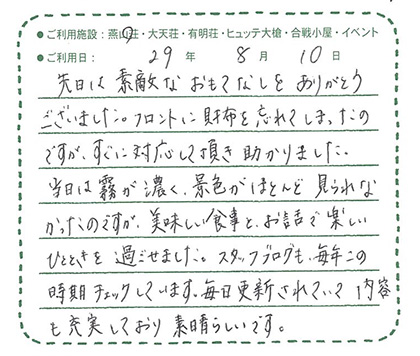 ●ご利用施設：燕山荘・大天荘・有明荘・ヒュッテ大槍・合戦小屋・イベント
●ご利用日： 29 年 8 月 10 日
先日は素敵なおもてなしをありがとう
ございました。フロントに財布を忘れてしまったの
ですが、すぐに対応して頂き助かりました。
当日は霧が濃く、景色がほとんど見られな
かったのですが、美味しい食事と、お話で楽しい
ひとときを過ごせました。スタッフブログも、毎年この
時期チェックしています。毎日更新されていて内容
も充実しており素晴らしいです。